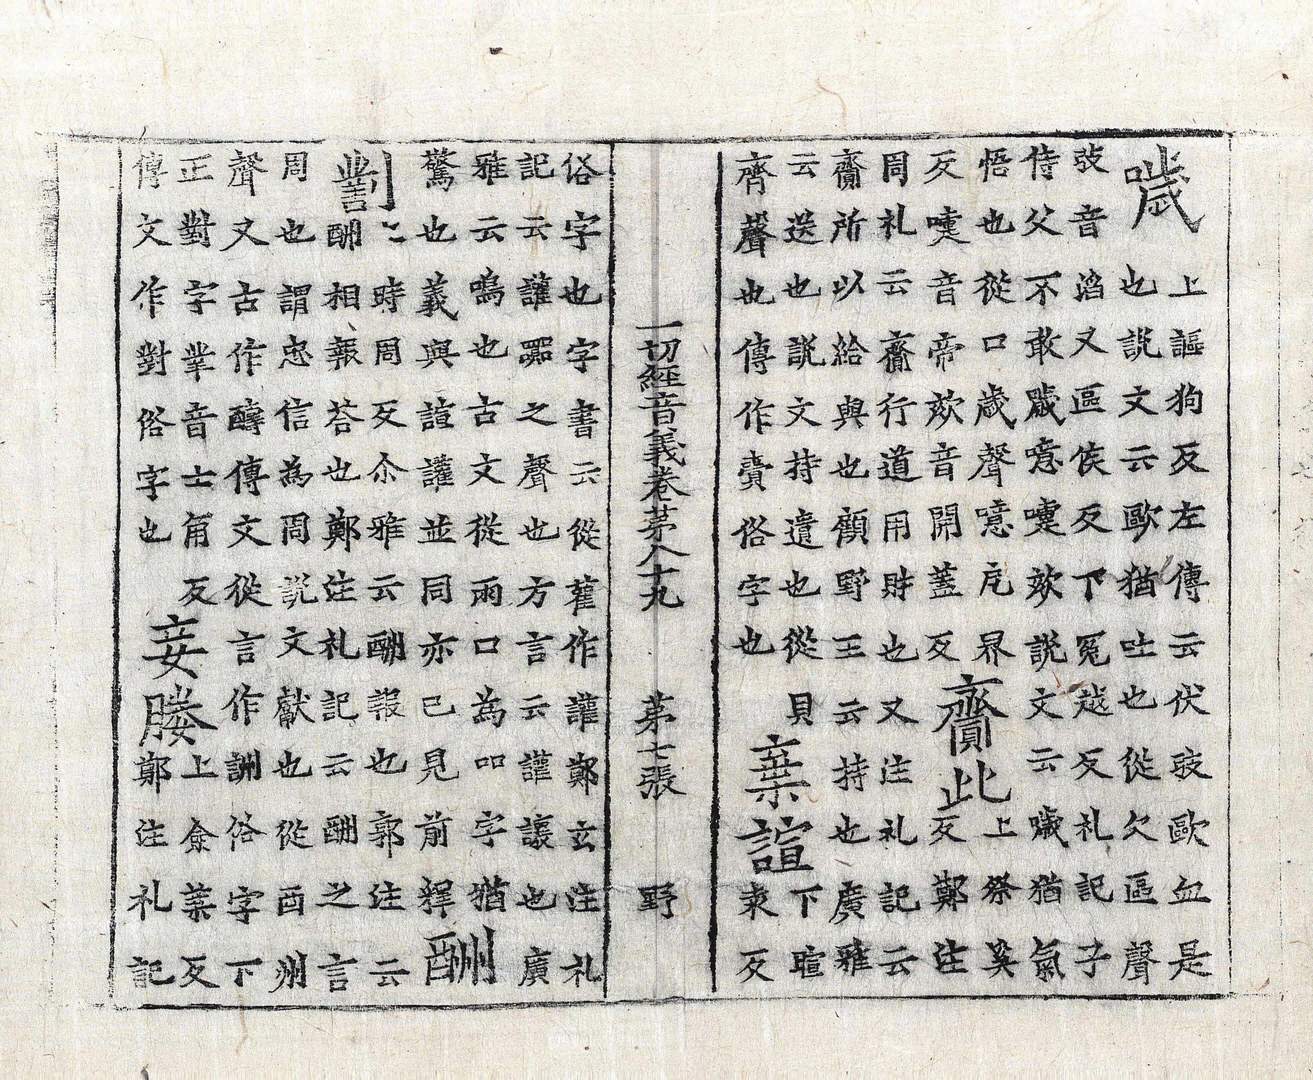 噦上謳狗反左傳云伏弢歐血是
也說文云歐猶吐也從欠區聲
弢音滔又區侯反下冤越反礼記子
侍父不敢噦噫嚏欬說文云噦猶氣
悟也從口歲聲噫戹界
反嚏音帝欬音開蓋反
齎此上祭奚
反鄭注
周礼云齎行道用財也又注礼記云
齎所以給與也顧野王云持也廣雅
云送也說文持遺也從貝
齊聲也傳作賷俗字也
棄諠下暄
衷反
一切經音義卷苐八十九 苐七張 野
俗字也字書云從雚作讙鄭玄注礼
記云讙嚻之聲也方言云讙讓也廣
雅云鳴也古文從雨口為吅字猶
驚也義與諠讙並同亦已見前釋
酬
時周反尒雅云酬報也郭注云
酬相報荅也鄭注礼記云酬之言
周也謂忠信為周說文獻也從酉州
聲又古作醻傳文從言作詶俗字下
正對字丵音士角反
傳文作對俗字也
妾媵上僉葉反
鄭注札記